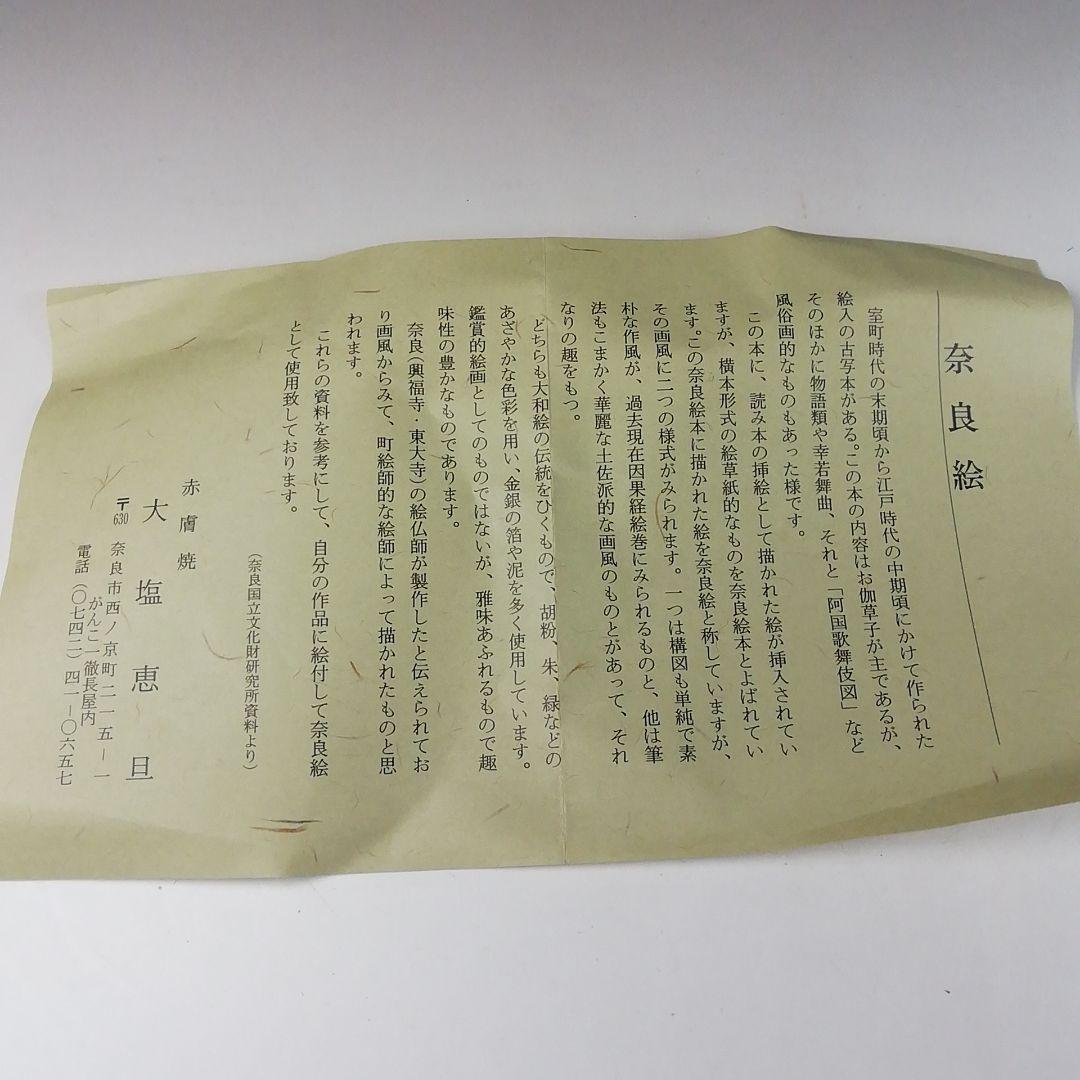 奈良絵
室町時代の末期頃から江戸時代の中期頃にかけて作られた
絵入の古写本がある。この本の内容はお伽草子が主であるが、
そのほかに物語類や幸若舞曲、それと「阿国歌舞伎図」など
風俗画的なものもあった様です。
この本に、読み本の挿絵として描かれた絵が挿入されてい
ますが、横本形式の絵草紙的なものを奈良絵本とよばれてい
ます。この奈良絵本に描かれた絵を奈良絵と称していますが、
その画風に二つの様式がみられます。一つは構図も単純で素
朴な作風が、過去現在因果経絵巻にみられるものと、他は筆
法もこまかく華麗な土佐派的な画風のものとがあって、それ
なりの趣をもつ。
どちらも大和絵の伝統をひくもので、胡粉、朱、緑などの
あざやかな色彩を用い、金銀の箔や泥を多く使用しています。
鑑賞的絵画としてのものではないが、雅味あふれるもので趣
味性の豊かなものであります。
奈良(興福寺・東大寺)の絵仏師が製作したと伝えられてお
り画風からみて、町絵師的な絵師によって描かれたものと思
われます。
これらの資料を参考にして、自分の作品に絵付して奈良絵
として使用致しております。
(奈良国立文化財研究所資料より)
赤膚焼
大塩恵旦
〒630 奈良市西ノ京町二一五ー一
がんこ一徹長屋内
電話(〇七四二)四一ー〇六五七